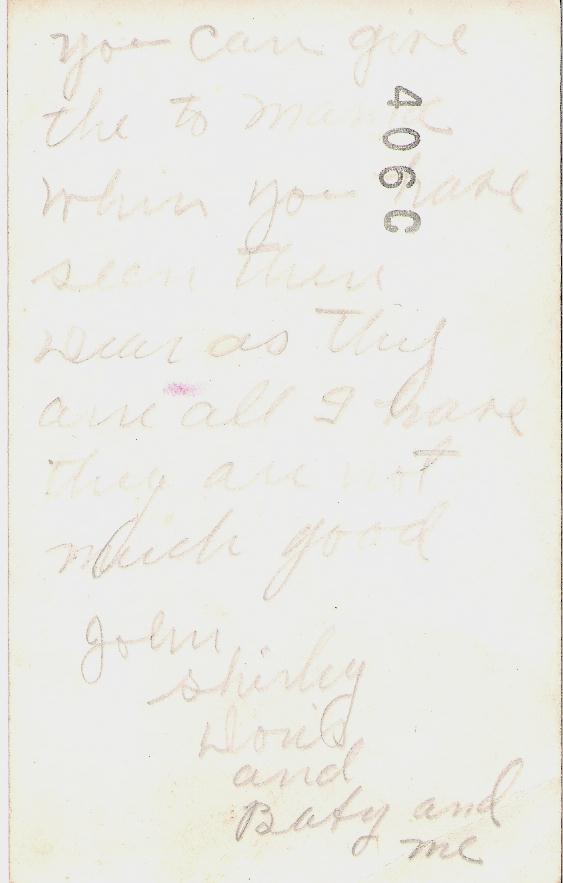 you can give
the to mama
when you have
seen then
Dear as they
are all I have
they are not
much good
John
Shirley
Doris
and
Baty and
me
406C